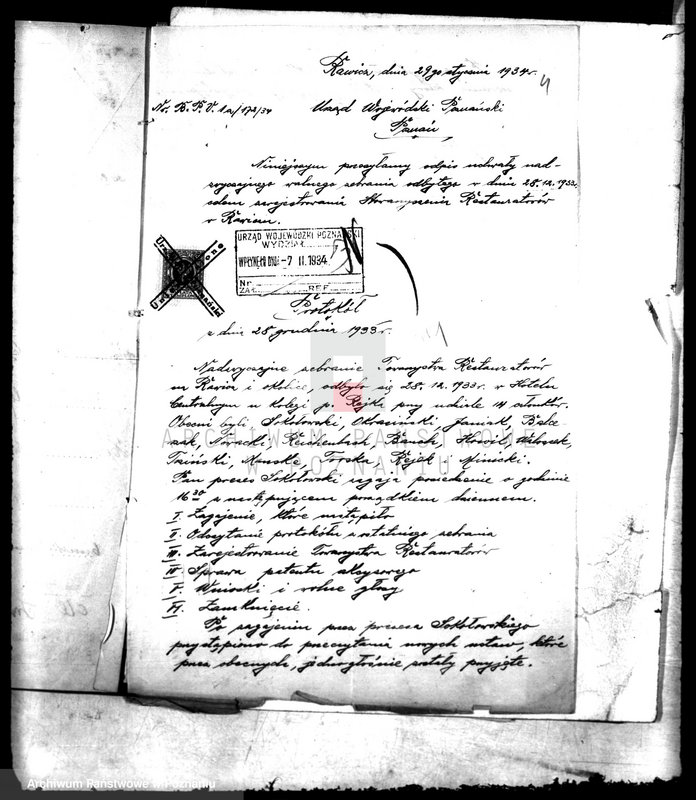 Rawicz, dnia 29go stycznia 1934r.
4
No. B.P.V. 1a/172/34
Urząd Wojewódzki Poznański
Poznań
Niniejszym przesyłamy odpis uchwały nad-
zwyczajnego walnego zebrania odbytego w dniu 28.12.1933
celem zarejestrowania Stowarzyszenia Restauratorów
w Rawiczu.
URZĄD WOJEWÓDZKI POZNAŃSKI
WYDZIAŁ
WPŁYNĘŁO DNIA -7 II. 1934
Nr.
ZAŁ. REF.
Protokół
z dnia 28 grudnia 1933r.
Nadzwyczajne zebranie Towarzystwa Restauratorów
na Rawicz i okolicę, odbyło się 28.12.1933 r. w Hotelu
Centralnym u kolegi p. Rejka przy udziale 14 członków.
Obecni byli, Sokołowski, Okrasiński, Janiak, Balce-
rak, Nowacki, Reichenbach, Banach,
Menske, Torska, Rejek
Pan prezes Sokołowski zagaja posiedzenie o godzinie
16 30 z następującem porządkiem dziennem.
I. Zagajenie, które nastąpiło
II. Odczytanie protokółu z ostatniego zebrania
III. Zarejestrowanie Towarzystwa Restauratorów
IV. Sprawa patentu akcyzowego
V. Wnioski i wolne głosy
VI. Zamknięcie.
Po zagajeniu przez prezesa Sokołowskiego
przystąpiono do przeczytania nowych ustaw, które
przez obecnych, jednogłośnie zostały przyjęte.
ARCHIWUM PAŃSTWOWE
W POZNANIU
Archiwum Państwowe w Poznaniu